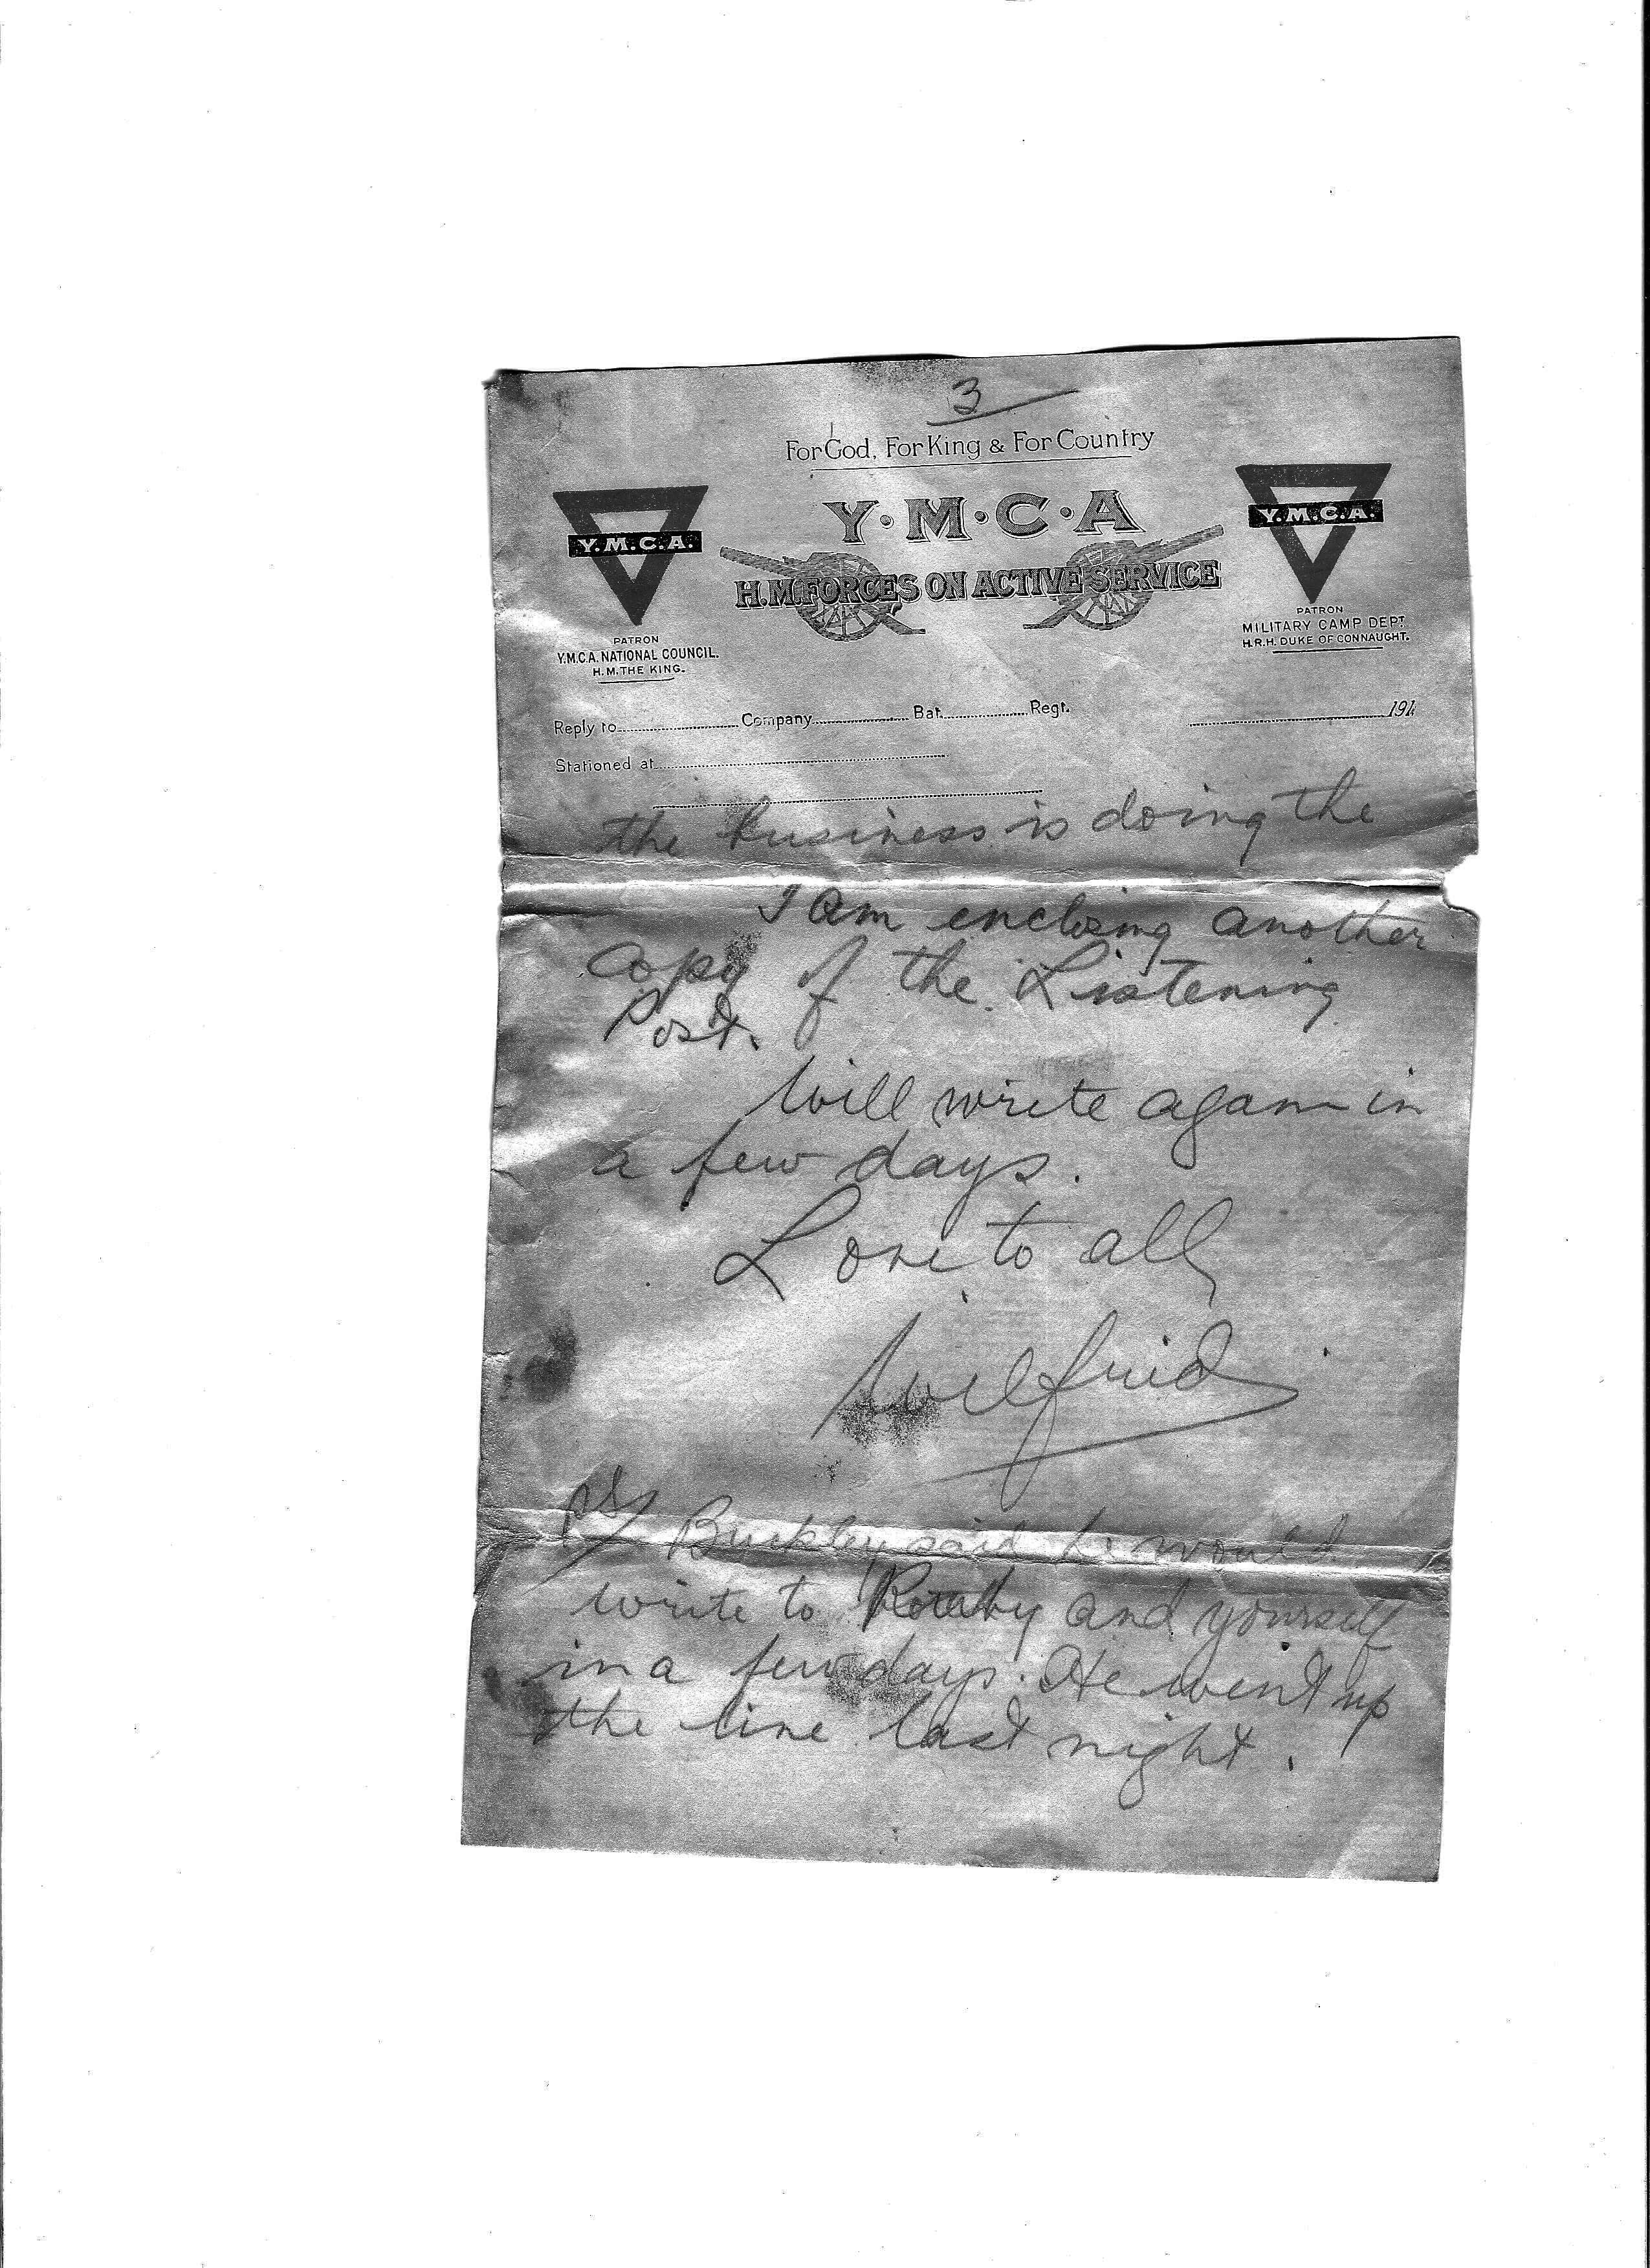 3
For God, For King & For Country
Y·M·C·A
H.M. FORCES ON ACTIVE SERVICE
Y.M.C.A.
PATRON
Y.M.C.A. NATIONAL COUNCIL.
H.M. THE KING.
Y.M.C.A.
PATRON
MILITARY CAMP DEPT
H.R.H. DUKE OF CONNAUGHT.
Reply to Company Bat. Regt. 191
Stationed at
the business is doing the
I am enclosing another
copy of the Listening
Post.
Will write again in
a few days.
Love to all
Wilfrid
PS/ Buckley said he would
write to and yourself
in a few days. He went up
the line last night.